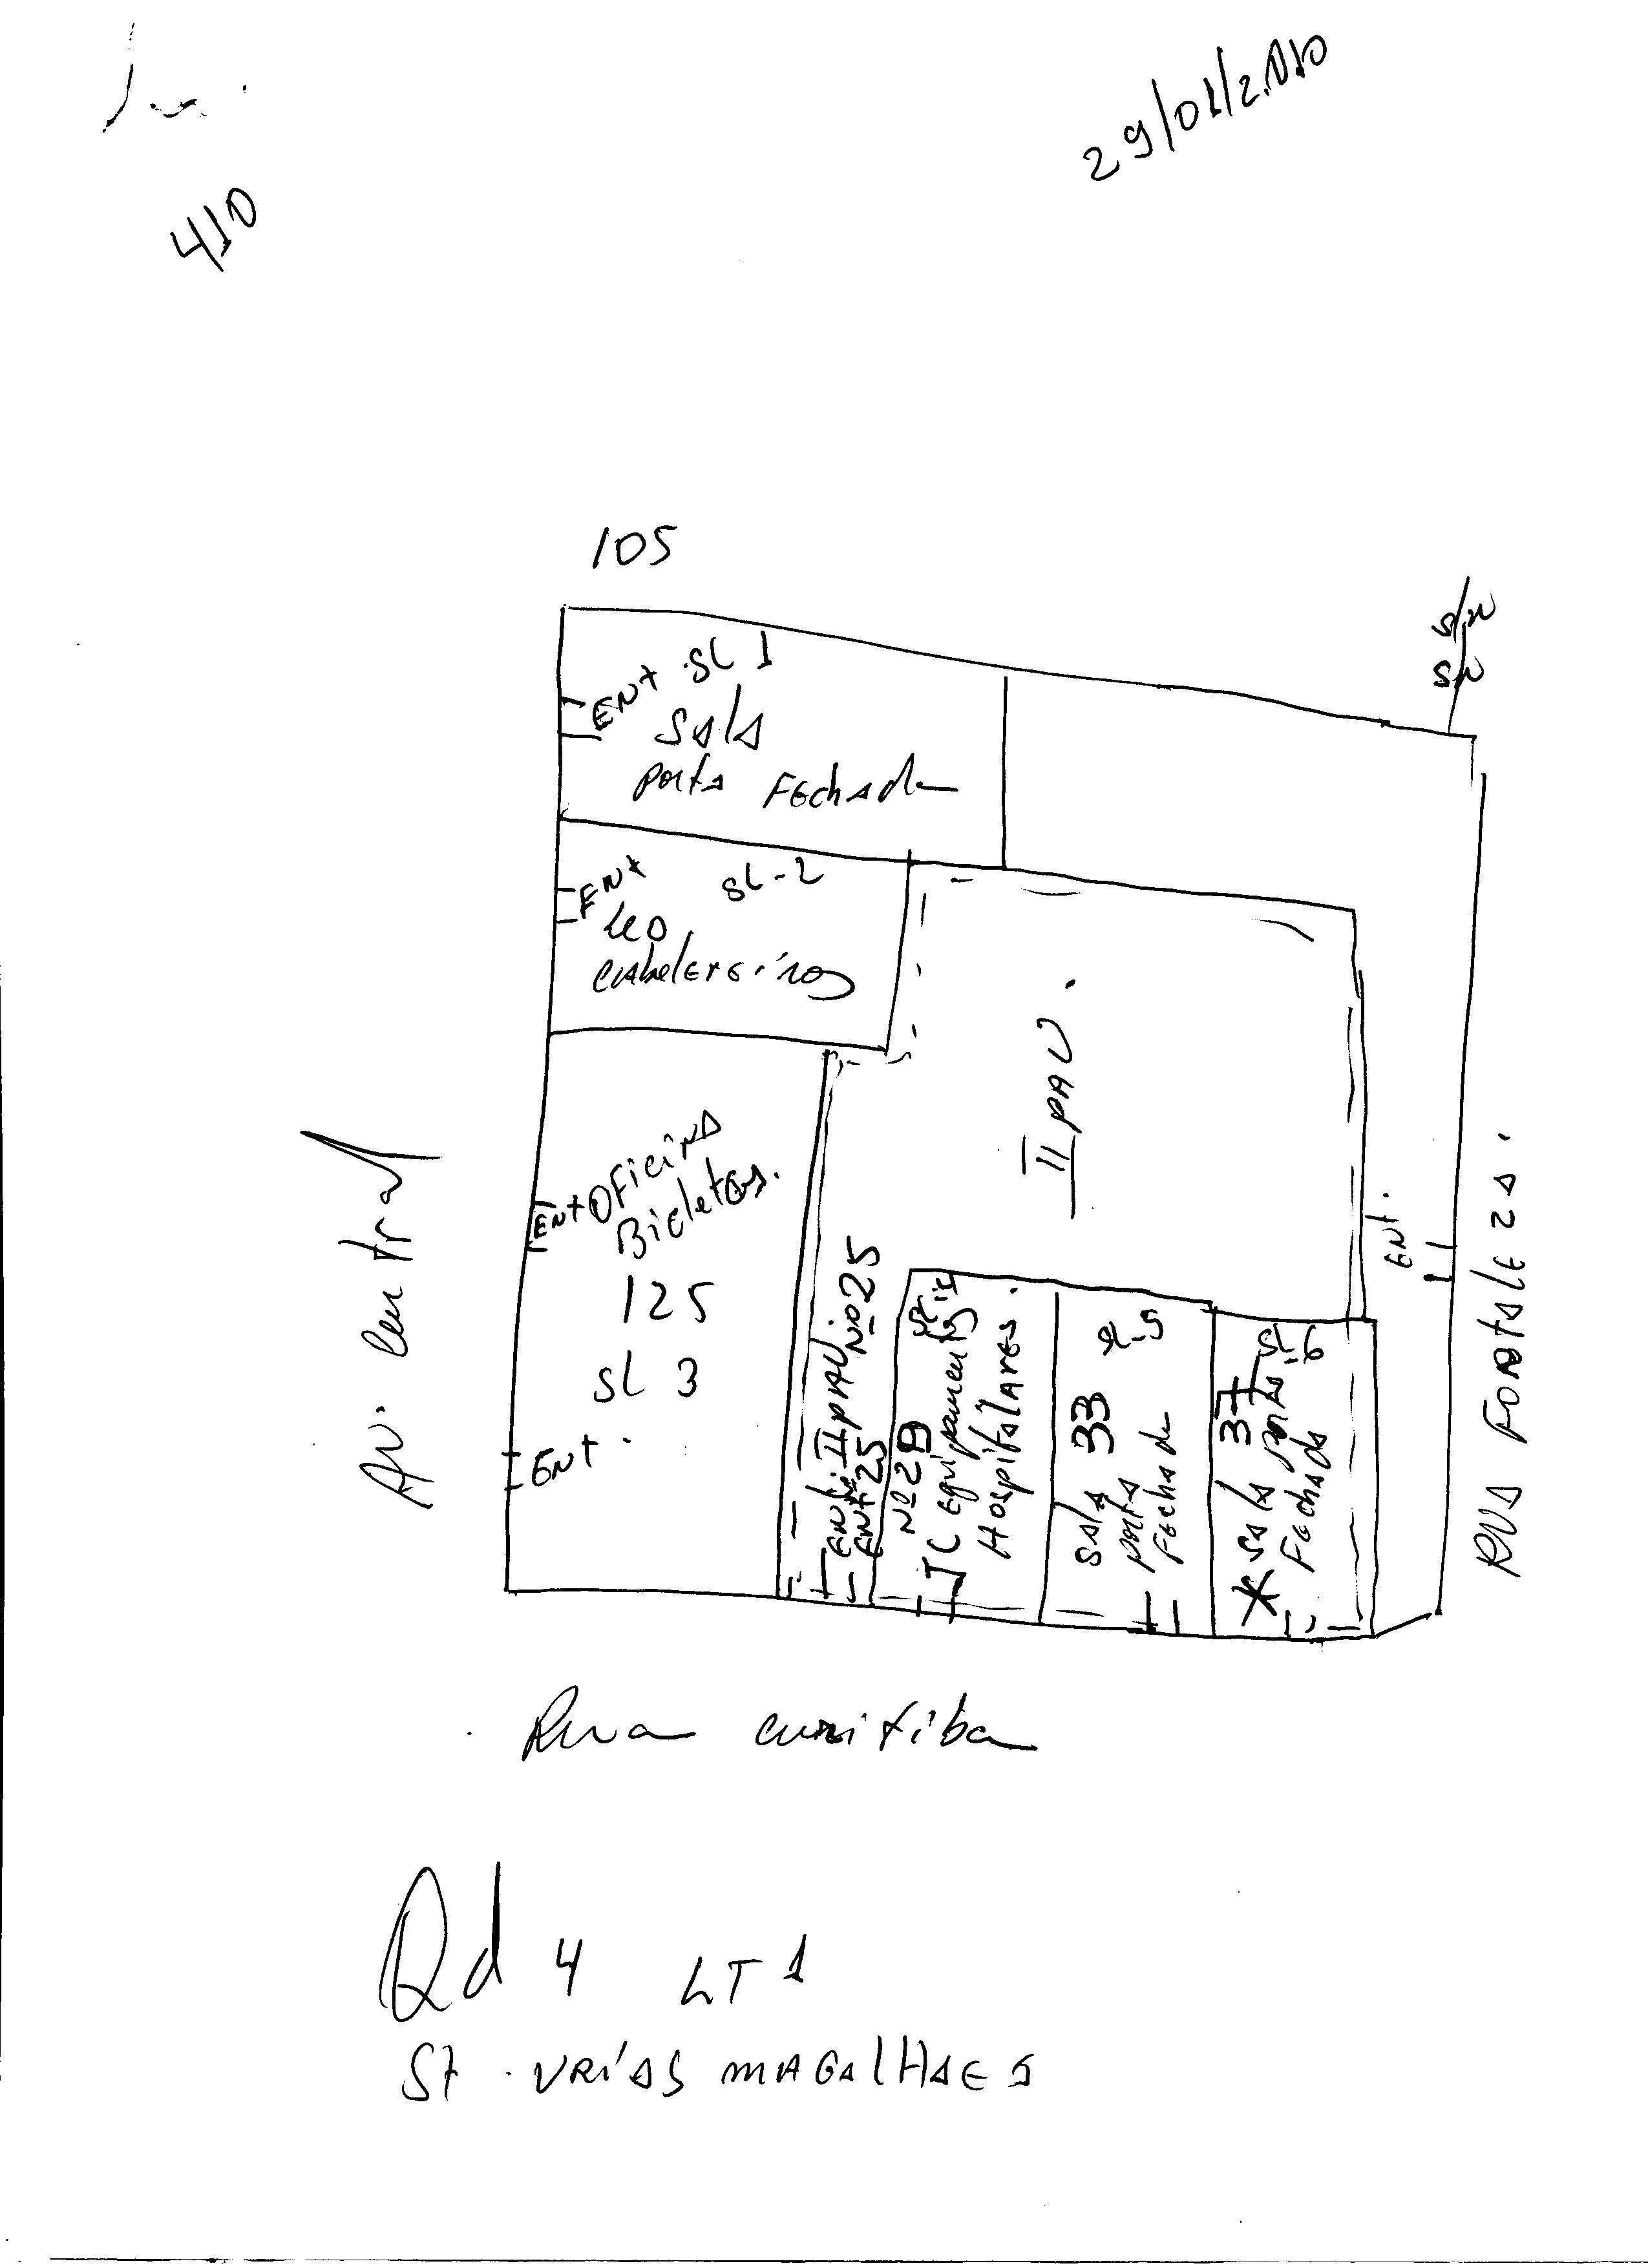 29/01/2.010
410
105
S/N
SN
ENt SL 1
SALA
porta Fechada
ENt SL-2
Leo
cabelereiros
II PAV.
Av. Central
ENt Oficina
Bicletas.
125
SL 3
ENt.
Ent. II PAV. Nº 25
ENt 25
Nº 29
JC Equipamentos
Hospitalares.
SL-5
Sala 33
porta
Fechada
SL-6
37
* Sala porta
Fechada
ENt.
RUA FORTALEZA.
Rua curitiba
Qd 4 LT 1
St. URIAS MAGALHAES